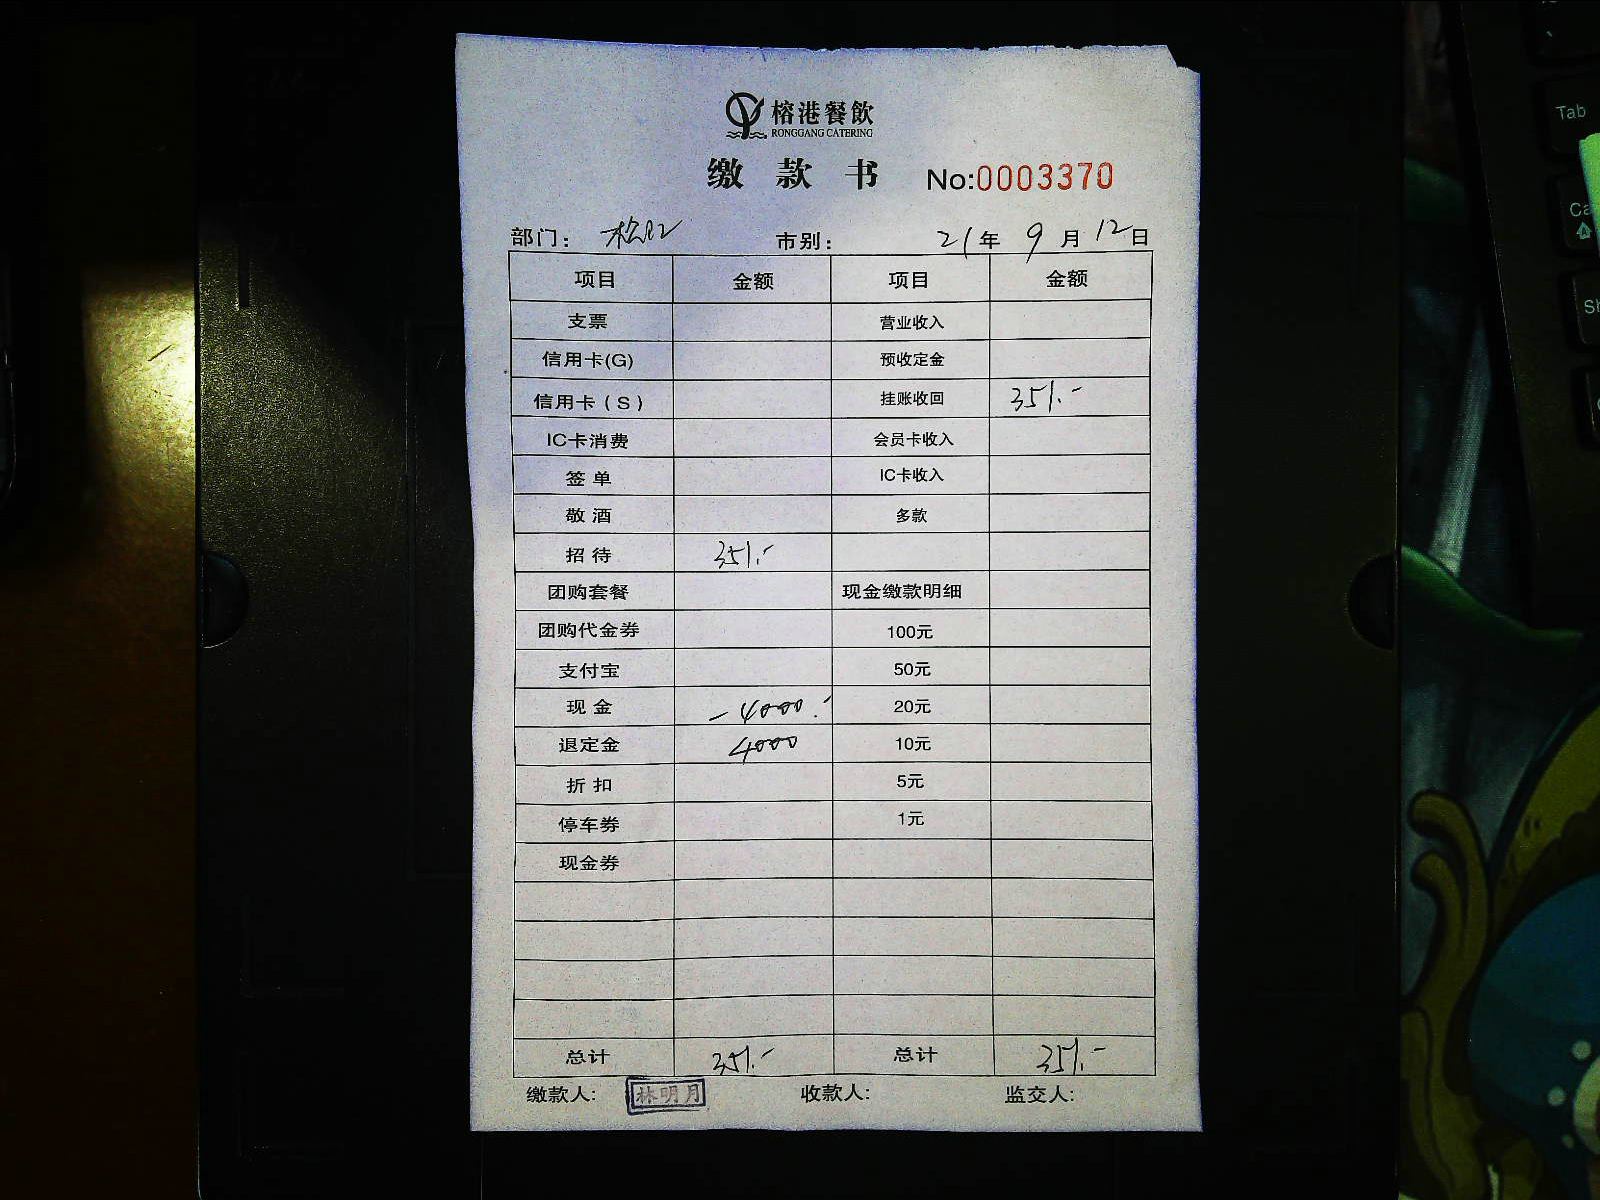 榕港餐飲
RONGGANG CATERING
缴 款 书 No:0003370
部门: 市别: 21年 9月 12日
项目 金额 项目 金额
支票 营业收入
信用卡(G) 预收定金
信用卡(S) 挂账收回 351.-
IC卡消费 会员卡收入
签单 IC卡收入
敬酒 多款
招待 351.-
团购套餐 现金缴款明细
团购代金券 100元
支付宝 50元
现金 -4000.- 20元
退定金 4000 10元
折扣 5元
停车券 1元
现金券
总计 351.- 总计 351.-
缴款人: 林明月 收款人: 监交人:
Tab